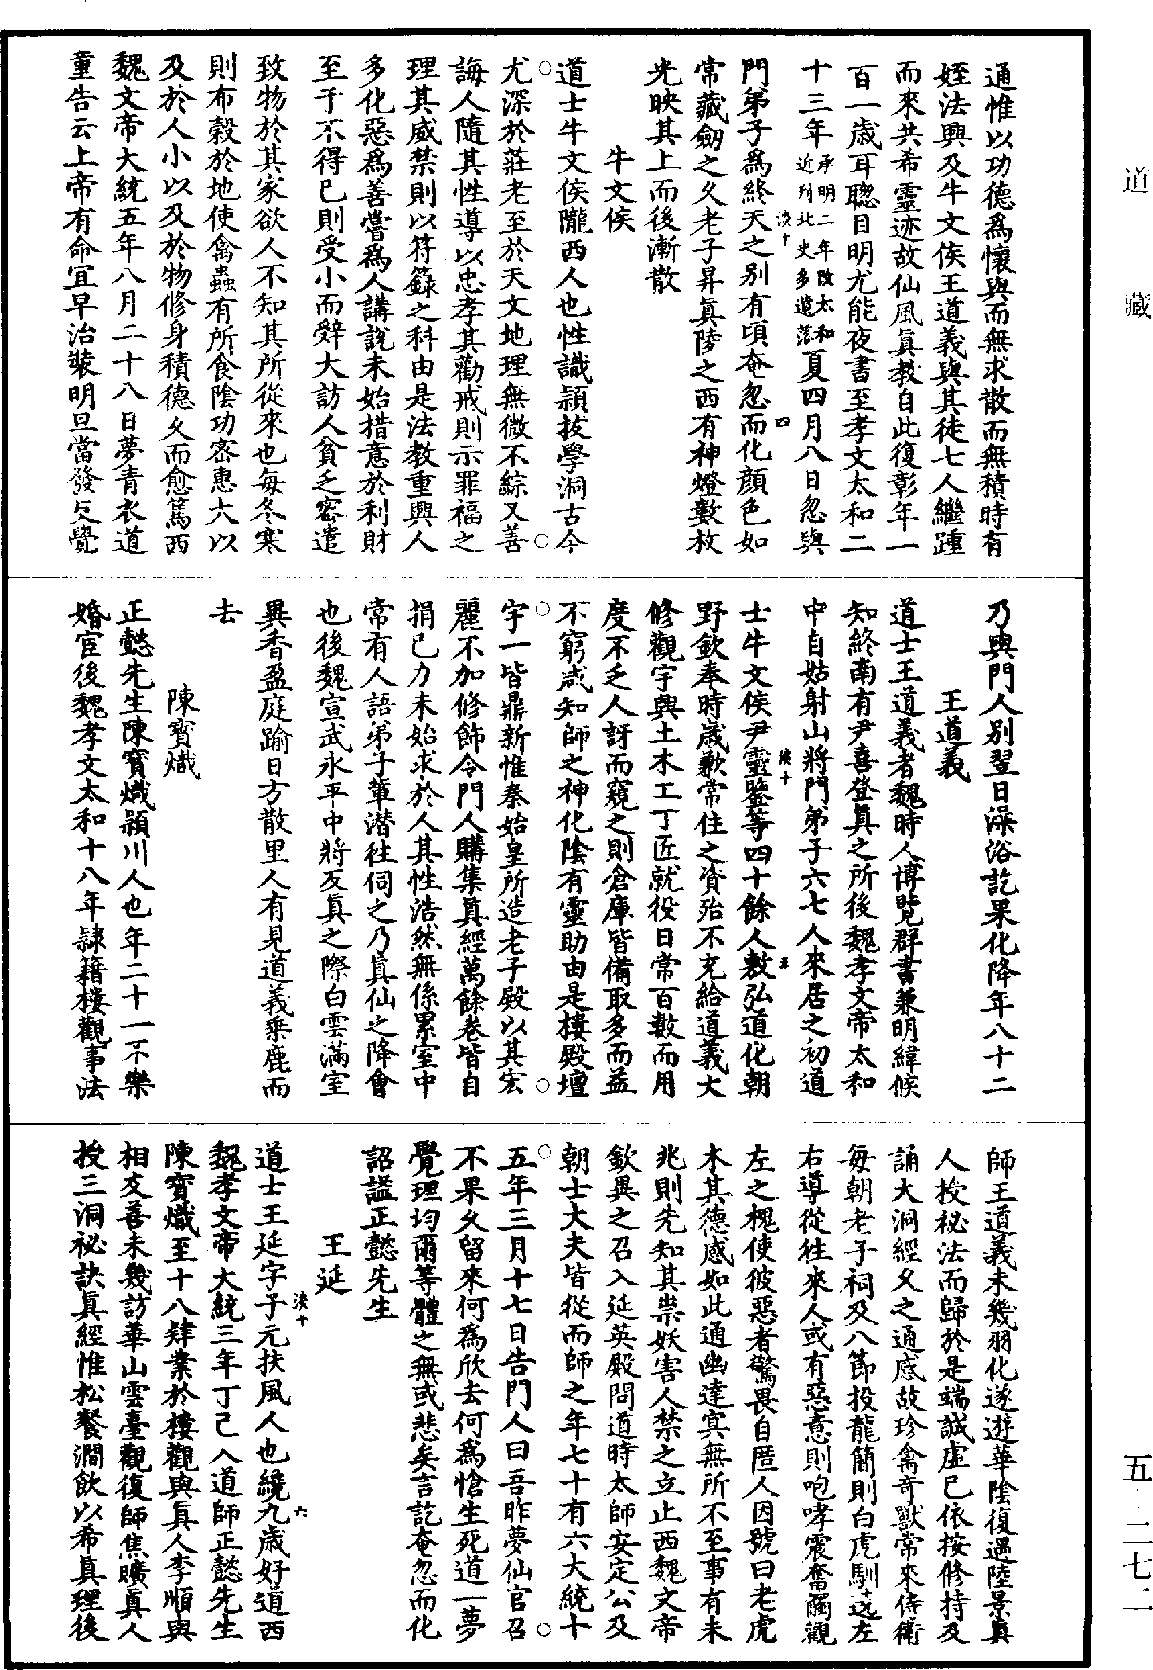 通惟以功德爲懷與而無求散而無積時有
姪法興及牛文侯王道義與其徒七人繼踵
而來共希靈迹故仙風眞教自此復彰年一
百一歲耳聰目明尤能夜書至孝文太和二
十三年承明二年改太和近刋北史多遺落夏四月八日忽與
門弟子爲終天之别有頃奄忽而化顔色如
常藏劒之夕老子昇眞陵之西有神燈數枚
光映其上而後漸散
牛文侯
道士牛文侯隴西人也性識頴拔學洞古今
尤深於莊老至於天文地理無微不綜又善
誨人隨其性導以忠孝其勸戒則示罪福之
理其威禁則以符籙之科由是法教重興人
多化惡爲善嘗爲人講說未始措意於利財
至于不得已則受小而辭大訪人貧乏密遣
致物於其家欲人不知其所從來也每冬寒
則布穀於地使禽蟲有所食陰功密惠大以
及於人小以及於物修身積德久而愈篤西
魏文帝大統五年八月二十八日夢青衣道
童告云上帝有命宜早治裝明旦當發文覺
乃與門人别翌日澡浴訖果化降年八十二
王道義
道士王道義者魏時人博覽群書兼明緯候
知終南有尹喜登眞之所後魏孝文帝太和
中自姑射山將門弟子六七人來居之初道
士牛文侯尹靈鑒等四十餘人敷弘道化朝
野欽奉時歲歉常住之資殆不充給道義大
修觀宇興土木工丁匠就役日常百數而用
度不乏人訝而窺之則倉庫皆備取多而益
不窮咸知師之神化陰有靈助由是樓殿壇
宇一皆鼎新惟秦始皇所造老子殿以其宏
麗不加修飾令門人購集眞經萬餘卷皆自
捐己力未始求於人其性浩然無係累室中
常有人語弟子輩潛往伺之乃眞仙之降會
也後魏宣武永平中將反眞之際白雲滿室
異香盈庭踰日方散里人有見道義乘鹿而
去
陳寶熾
正懿先生陳寶熾頴川人也年二十一不樂
婚宦後魏孝文太和十八年隷籍樓觀事法
師王道義未幾羽化遂遊華陰復遇陸景眞
人授祕法而歸於是端誠虚己依按修持及
誦大洞經久之通感故珍禽奇獸常來侍衛
每朝老子祠及八節投龍簡則白虎馴遶左
右導從往來人或有惡意則咆哮震奮觸觀
左之槐使彼惡者驚畏自匿人因號曰老虎
木其德感如此通幽達冥無所不至事有未
兆則先知其祟妖害人禁之立止西魏文帝
欽異之召入延英殿問道時太師安定公及
朝士大夫皆從而師之年七十有六大統十
五年三月十七日告門人曰吾昨夢仙官召
不果久留來何爲欣去何爲愴生死道一夢
覺理均爾等體之無或悲矣言訖奄忽而化
詔謚正懿先生
王延
道士王延字子元扶風人也纔九歲好道西
魏孝文帝大統三年丁己入道師正懿先生
陳寶熾至十八肄業於樓觀與眞人李順與
相友善未幾訪華山雲臺觀復師焦曠眞人
授三洞祕訣眞經惟松餐澗飲以希眞理後
淡十
四
淡十
五
淡十
六
道藏
五·二七二